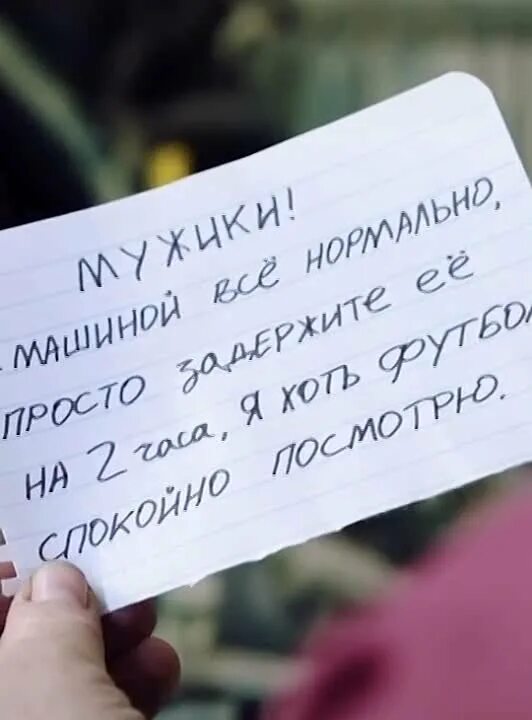 МУЖИКИ!
МАШИНОЙ ВСЁ НОРМАЛЬНО,
ПРОСТО ЗАДЕРЖИТЕ ЕЁ
НА 2 часа, Я ХОТЬ ФУТБОЛ
СПОКОЙНО ПОСМОТРЮ.